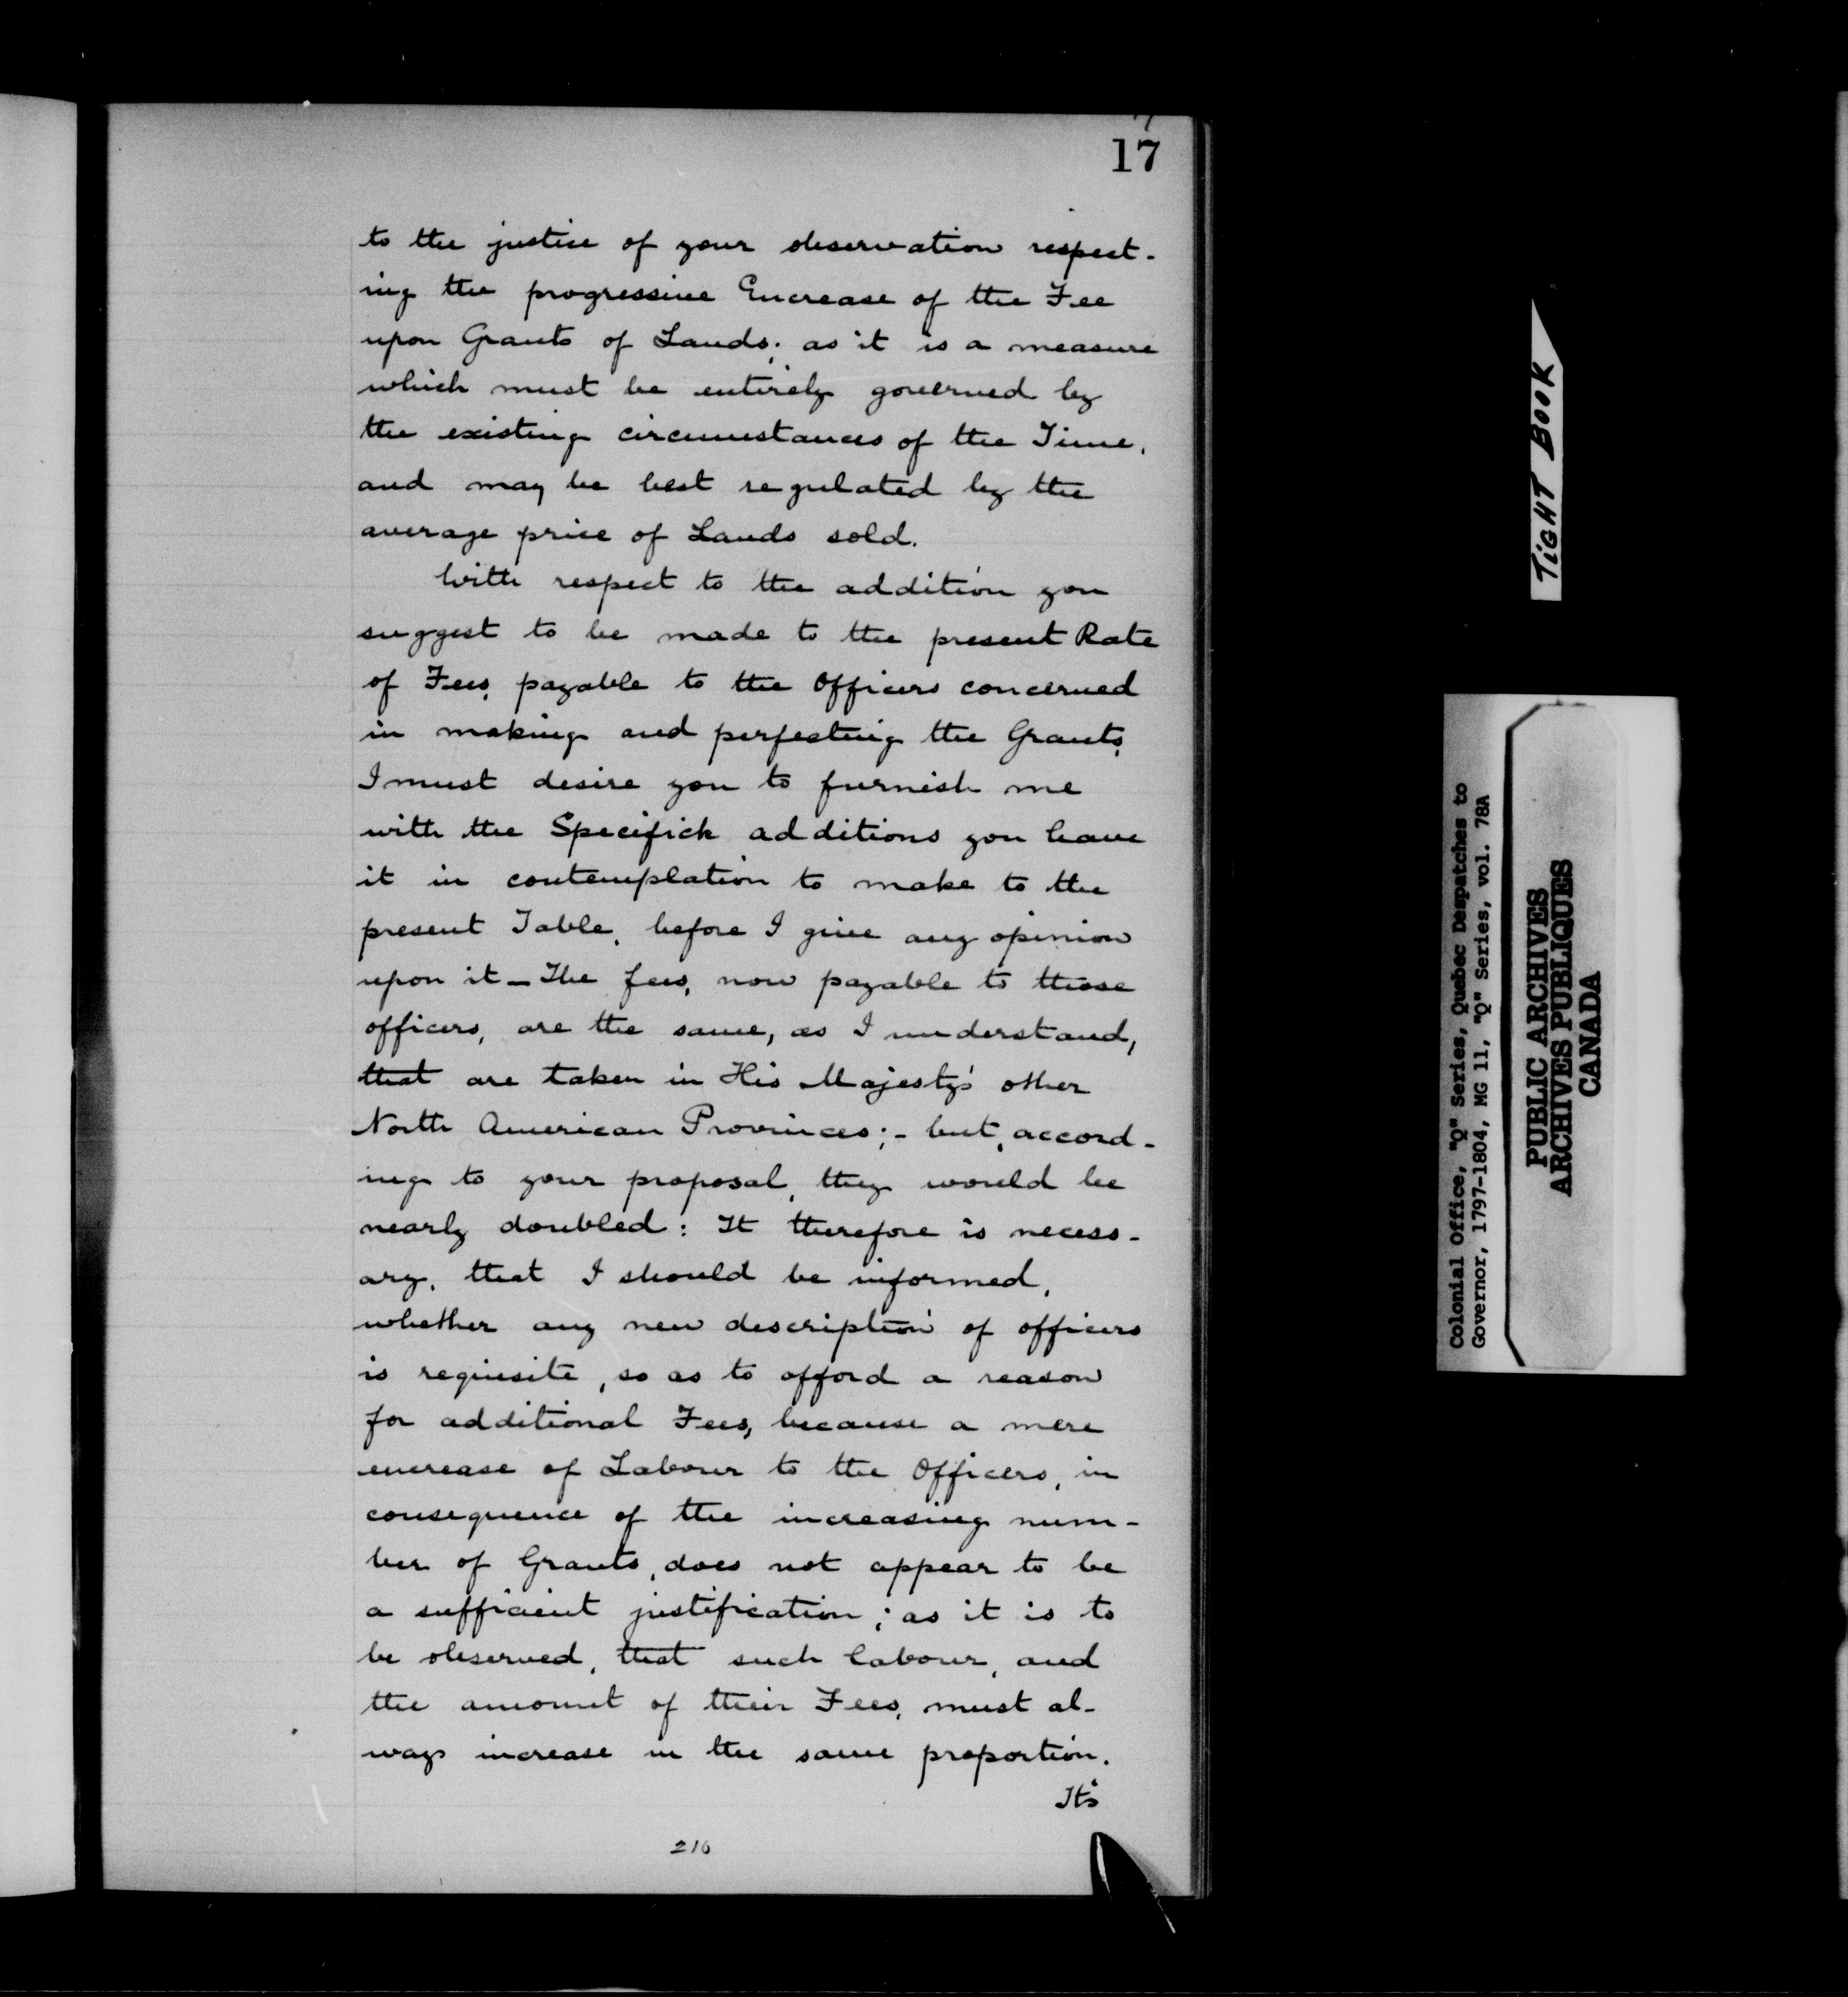 17
to the justice of your observation respect-
ing the progressive Encrease of the Fee
upon Grants of Lands; as it is a measure
which must be entirely governed by
the existing circumstances of the Time,
and may be best regulated by the
average price of Lands sold.
With respect to the addition you
suggest to be made to the present Rate
of Fees, payable to the Officers concerned
in making and perfecting the Grants,
I must desire you to furnish me
with the Specifick additions you have
it in contemplation to make to the
present Table, before I give any opinion
upon it - The fees, now payable to those
officers, are the same, as I understand,
that are taken in His Majesty's other
North American Provinces; - but, accord-
ing to your proposal, they would be
nearly doubled: It therefore is necess-
ary, that I should be informed,
whether any new description of officers
is requisite, so as to afford a reason
for additional Fees, because a mere
encrease of Labour to the Officers, in
consequence of the increasing num-
ber of Grants, does not appear to be
a sufficient justification; as it is to
be observed, that such labour, and
the amount of their Fees, must al-
ways increase in the same proportion.
It's
216
TiGHT BOOK
Colonial Office, "Q" Series, Quebec Despatches to
Governor, 1797-1804, MG 11, "Q" Series, vol. 78A
PUBLIC ARCHIVES
ARCHIVES PUBLIQUES
CANADA